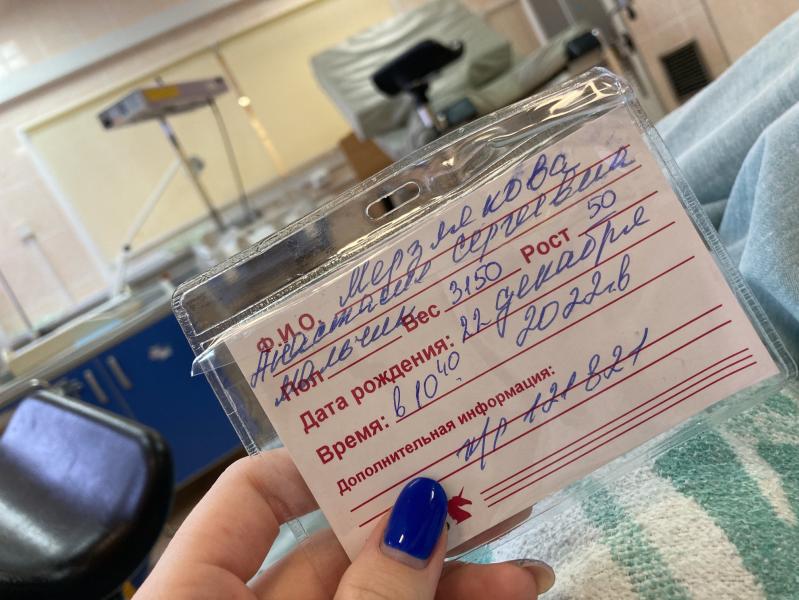 Ф.И.О. Мерзлякова
Анастасия Сергеевна
Пол мальчик Вес 3150 Рост 50
Дата рождения: 22 декабря
2022г.
Время: в 10⁴⁰
Дополнительная информация:
и/р 121821